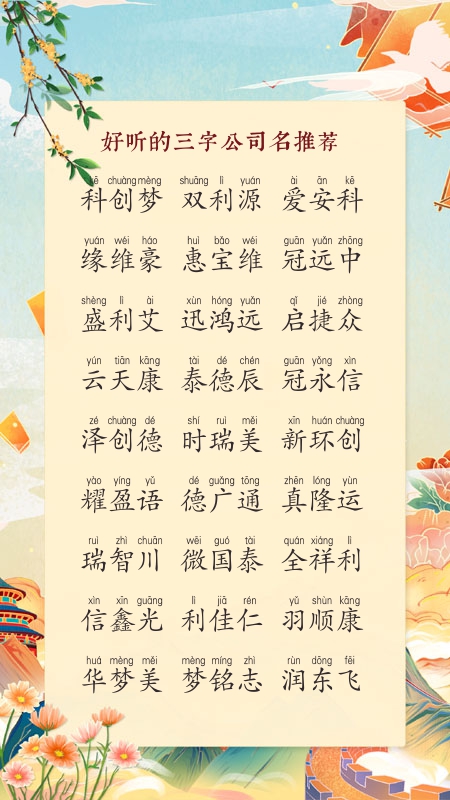 好听的三字公司名推荐
kē chuàng mèng shuāng lì yuán ài ān kē
科创梦 双利源 爱安科
yuán wéi háo huì bǎo wéi guān yuǎn zhōng
缘维豪 惠宝维 冠远中
shèng lì ài xùn hóng yuǎn qǐ jié zhòng
盛利艾 迅鸿远 启捷众
yún tiān kāng tài dé chén guān yǒng xìn
云天康 泰德辰 冠永信
zé chuàng dé shí ruì měi xīn huán chuàng
泽创德 时瑞美 新环创
yào yíng yǔ dé guǎng tōng zhēn lóng yùn
耀盈语 德广通 真隆运
ruì zhì chuān wēi guó tài quán xiáng lì
瑞智川 微国泰 全祥利
xìn xīn guāng lì jiā rén yǔ shùn kāng
信鑫光 利佳仁 羽顺康
huá mèng měi mèng míng zhì rùn dōng fēi
华梦美 梦铭志 润东飞